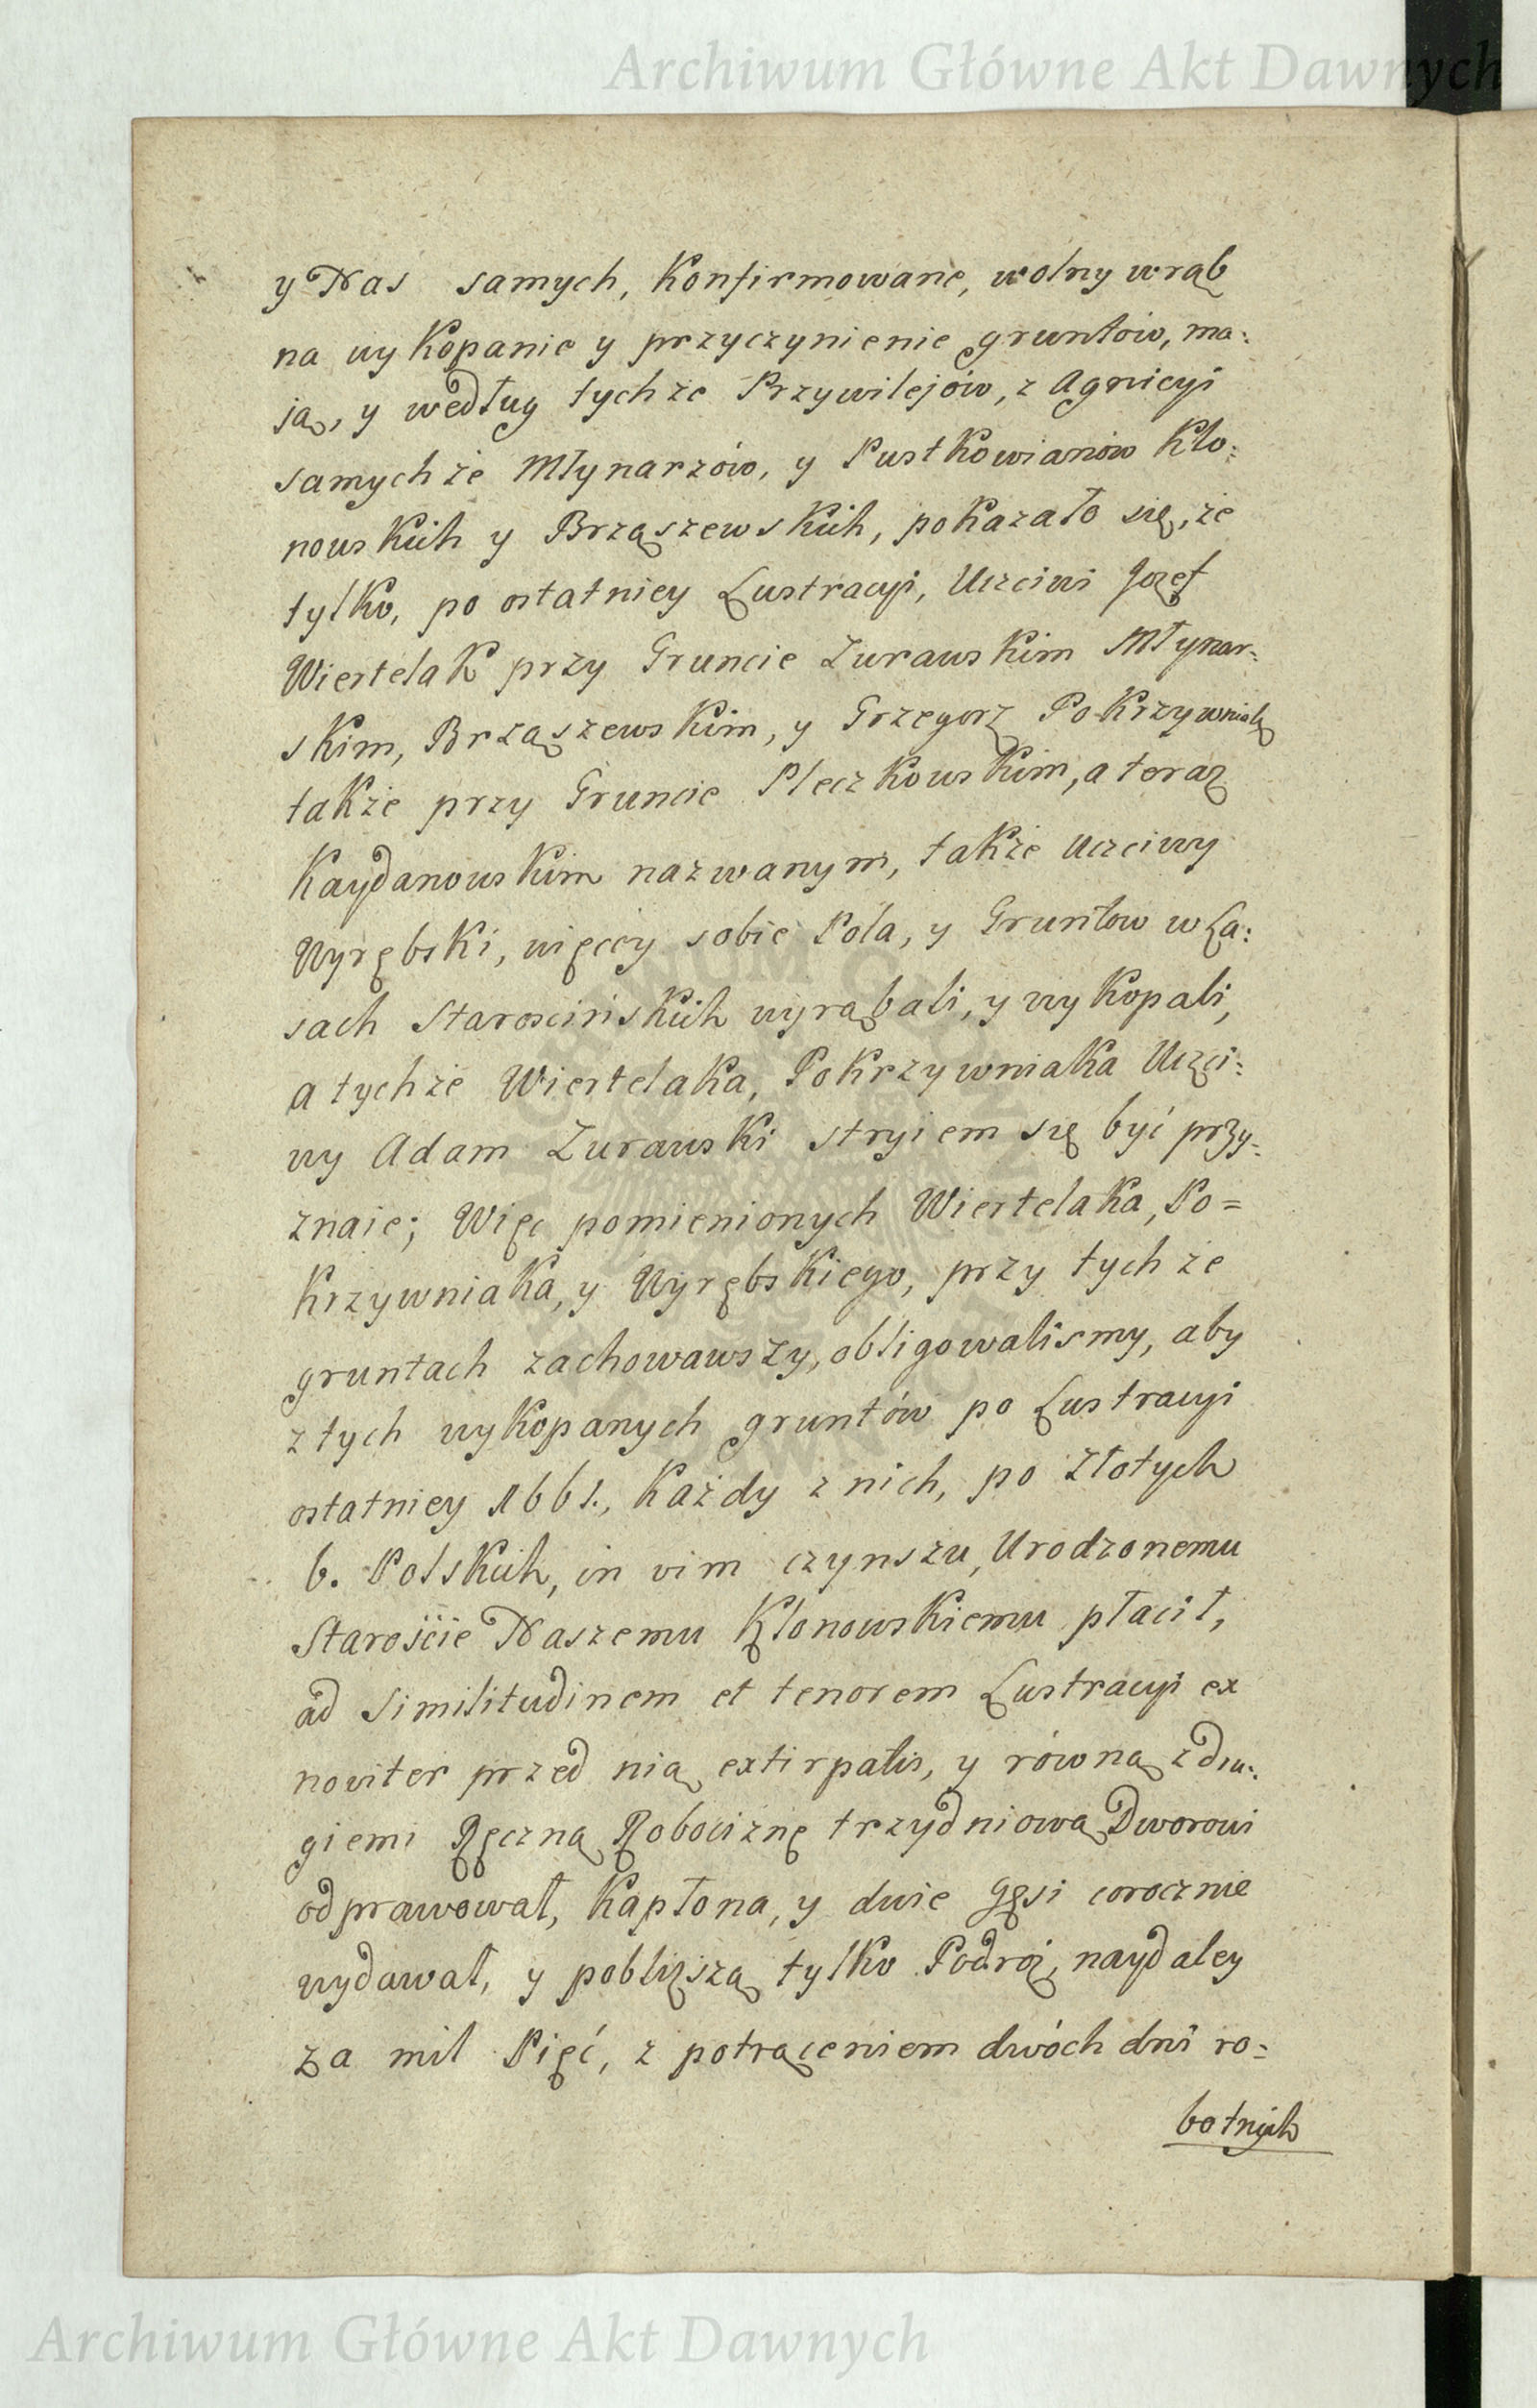 Archiwum Główne Akt Dawnych
y Nas samych, Konfirmowane, wolny wrąb
na wykopanie y przyczynienie gruntów, ma:
ją, y według tychże Przywilejów, z Agnicyi
samychże Młynarzów, y Pustkowianów Kło:
nowskich y Brząszewskich, pokazało się, że
tylko, po ostatniey Lustracyi, Uczciwi Jozef
Wiertelak przy Gruncie Zurawskim Młynar:
skim, Brząszewskim, y Grzegorz Pokrzywniak
także przy Gruncie Pleczkowskim, a teraz
Kaydanowskim nazwanym, także Uczciwy
Wyrębski, więcey sobie Pola, y Gruntow w La:
sach Starościńskich wyrąbali, y wykopali,
a tychże Wiertelaka, Pokrzywniaka Uczci:
wy Adam Zurawski stryiem się być przy:
znaie; Więc pomienionych Wiertelaka, Po=
krzywniaka, y Wyrębskiego, przy tychże
gruntach zachowawszy, obligowalismy, aby
z tych wykopanych gruntów po Lustracyi
ostatniey 1661., Każdy z nich, po Złotych
6. Polskich, in vim czynszu, Urodzonemu
Starościie Naszemu Kłonowskiemu płacił,
ad Similitudinem et tenorem Lustracyi ex
noviter przed nią extirpatis, y równą z dru:
giemi Ręczną Robociznę trzydniową Dworowi
odprawował, Kapłona, y dwie Gęsi corocznie
wydawał, y pobliższą tylko Podróż, naydaley
za mil Pięć, z potrąceniem dwóch dni ro:
botnych
Archiwum Główne Akt Dawnych